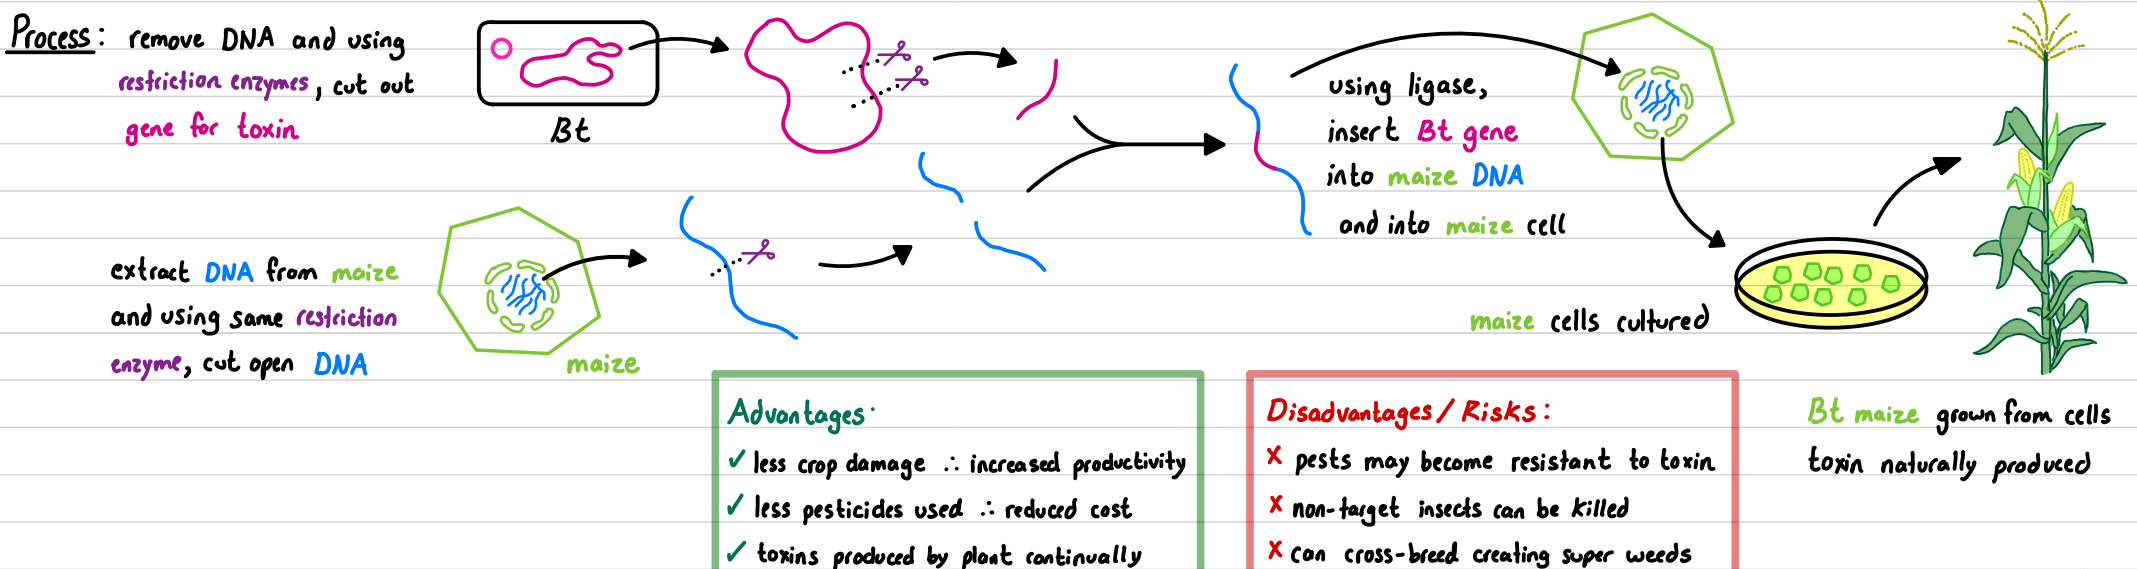 Process: remove DNA and using
restriction enzymes, cut out
gene for toxin
Bt
extract DNA from maize
and using same restriction
enzyme, cut open DNA
maize
using ligase,
insert Bt gene
into maize DNA
and into maize cell
maize cells cultured
Bt maize grown from cells
toxin naturally produced
Advantages:
✓ less crop damage ∴ increased productivity
✓ less pesticides used ∴ reduced cost
✓ toxins produced by plant continually
Disadvantages/Risks:
x pests may become resistant to toxin
x non-target insects can be killed
x can cross-breed creating super weeds